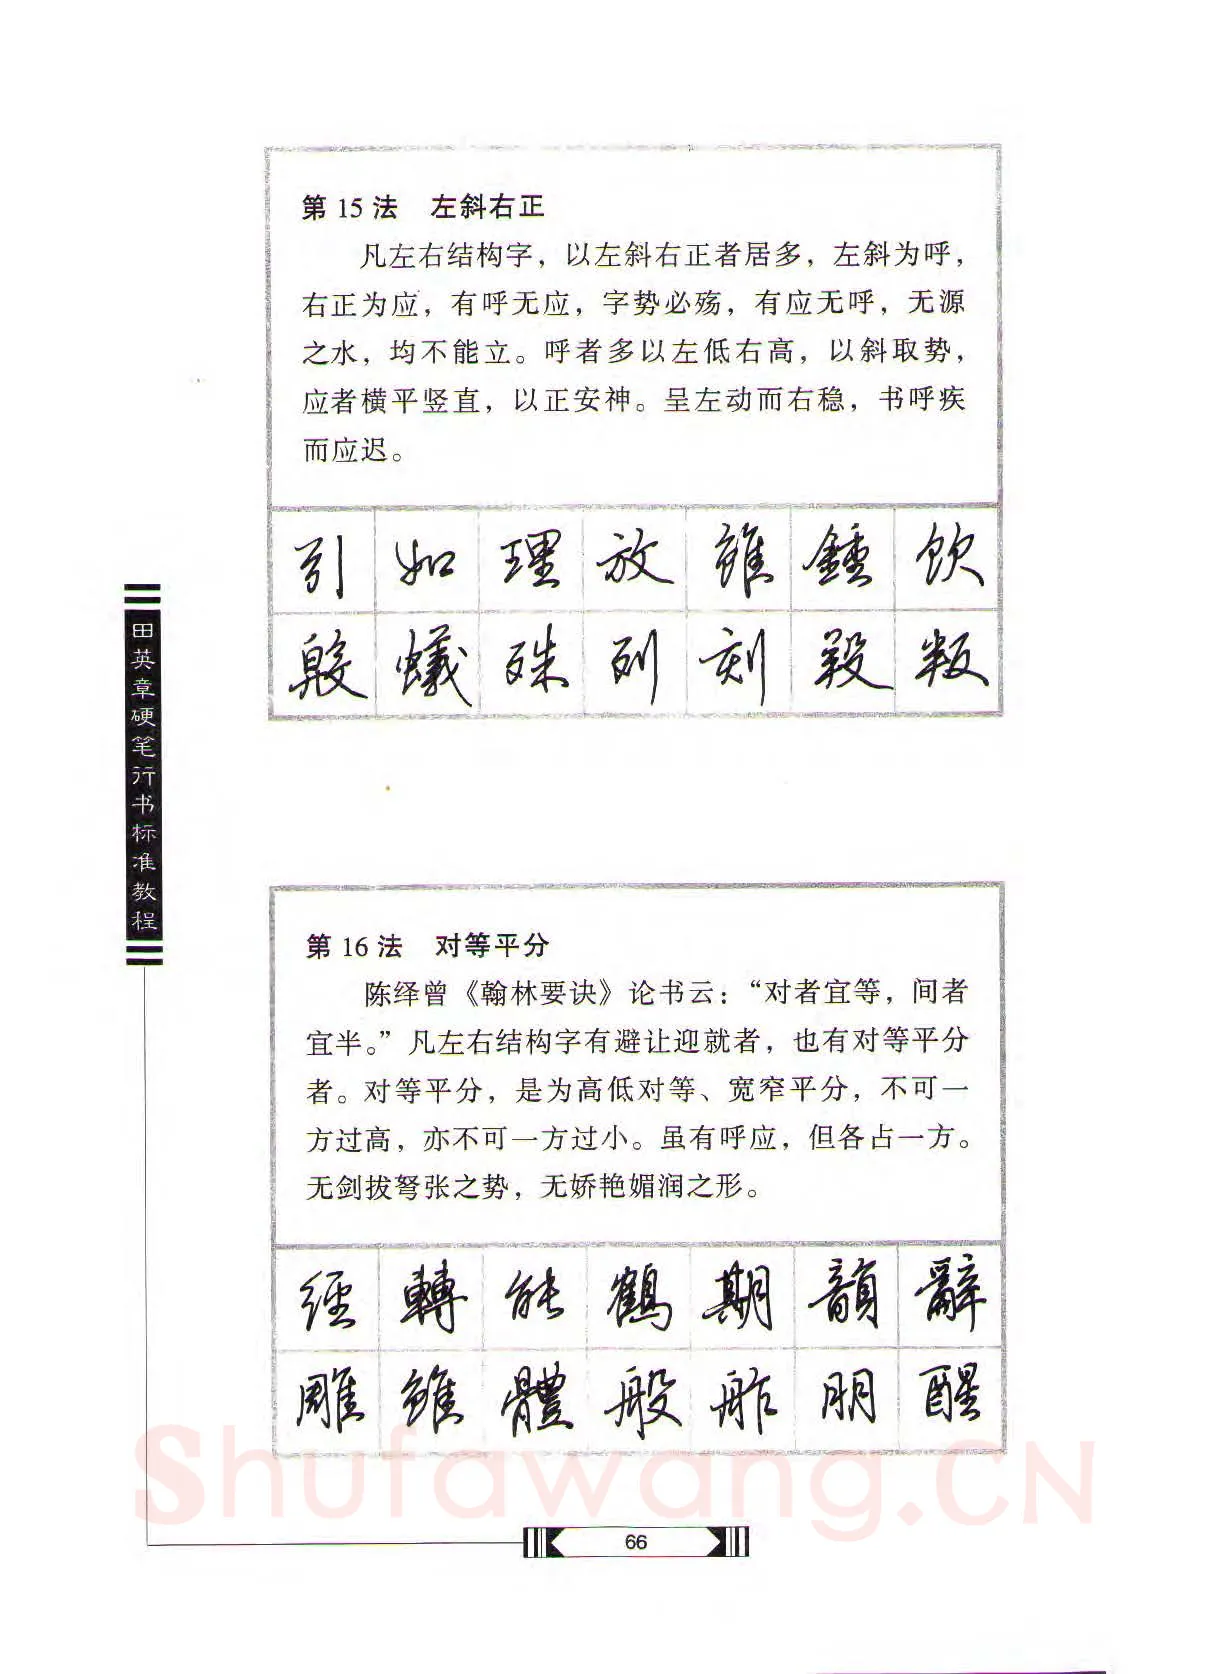 第 15 法 左斜右正
凡左右结构字，以左斜右正者居多，左斜为呼，
右正为应，有呼无应，字势必殇，有应无呼，无源
之水，均不能立。呼者多以左低右高，以斜取势，
应者横平竖直，以正安神。呈左动而右稳，书呼疾
而应迟。
引 如 理 放 雖 錘 饮
蟻 殊 列 刻 叛
田英章硬笔行书标准教程
第 16 法 对等平分
陈绎曾《翰林要诀》论书云：“对者宜等，间者
宜半。”凡左右结构字有避让迎就者，也有对等平分
者。对等平分，是为高低对等、宽窄平分，不可一
方过高，亦不可一方过小。虽有呼应，但各占一方。
无剑拔弩张之势，无娇艳媚润之形。
經 轉 能 鶴 期 韻 辭
雕 雖 體 般 朋 醒
Shufawang.CN
66